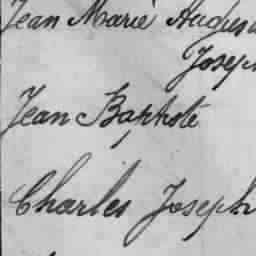 Jean Marie Augus
Joseph
Jean Baptiste
Charles Joseph